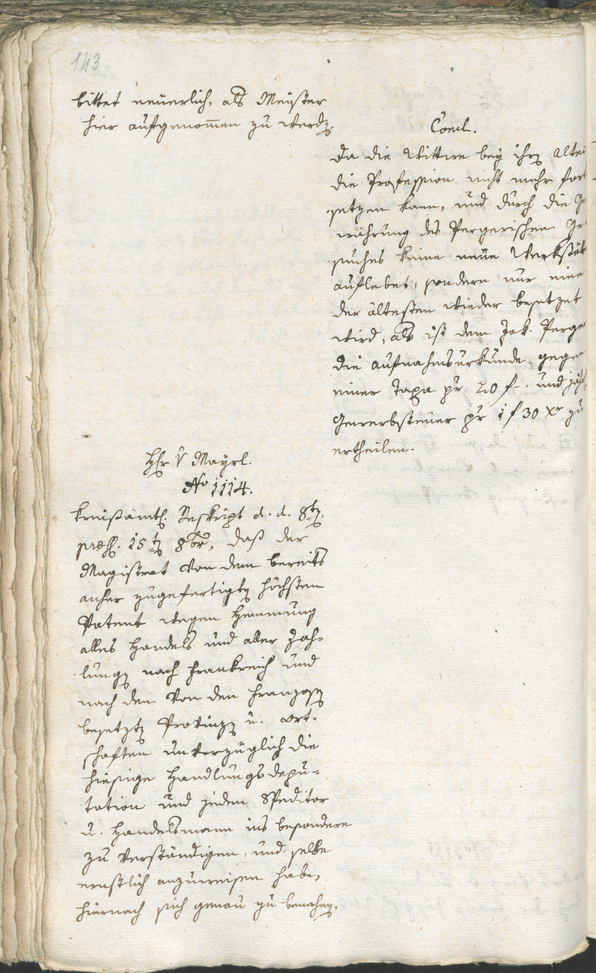 143
bittet neuerlich, als Meister
hier aufgenom̅en zu werdẽ.
Concl.
Da die Wittwe bey ihrẽ Alter
die Profession nicht mehr fort
setzen kann, und durch die Ge
währung des Pergerischen Ge
suches keine neue Werkstätt
auflebet, sondern nur eine
der ältesten wieder besetzet
wird, als ist dem Jak. Perger
die Aufnahmsurkunde gegen
einer Taxa pr 20 f. und jäh
Gewerbsteuer pr 1 f 30 xr zu
ertheilen.
Hr v Mayrl.
No 1114.
Kreisämtl. Reskript d. d. 8tẽ
præs. 15tẽ 8br, daß der
Magistrat von dem bereits
anher zugefertigtẽ höchsten
Patent wegen Hemmung
alles Handels und aller Zah-
lungẽ nach Frankreich und
nach den von den Franzosẽ
besetztẽ Provinzẽ u. Ort-
schaften unverzüglich die
hiesige Handlungsdepu-
tation und jeden Speditor
u. Handelsmann ins besondere
zu verständigen, und selbe
ernstlich anzuweisen habe,
hiernach sich genau zu benehmẽ.